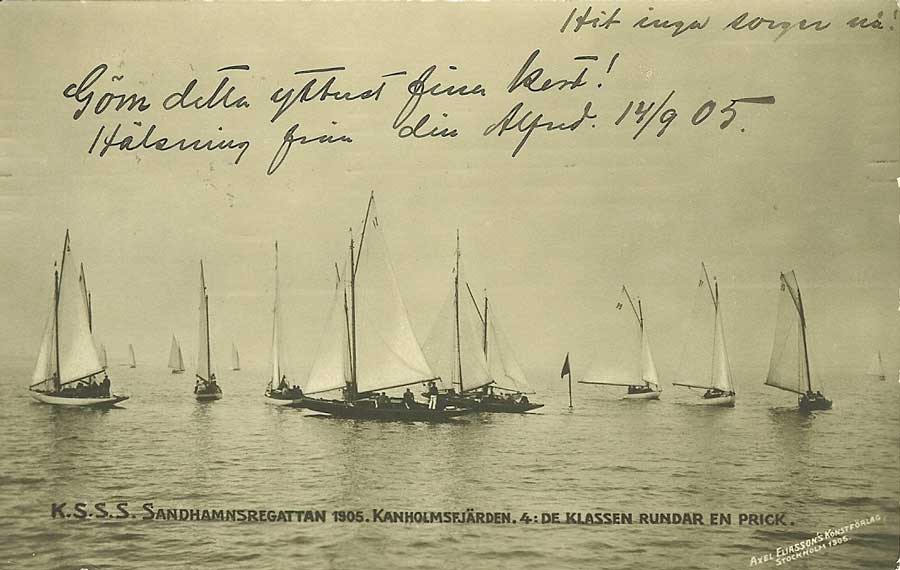 Hit inga sorger nå!
Göm detta ytterst fina kort!
Hälsning från din Alfred. 14/9 05.
K.S.S.S. SANDHAMNSREGATTAN 1905. KANHOLMSFJÄRDEN. 4:DE KLASSEN RUNDAR EN PRICK.
AXEL ELIASSON'S KONSTFÖRLAG,
STOCKHOLM 1905.